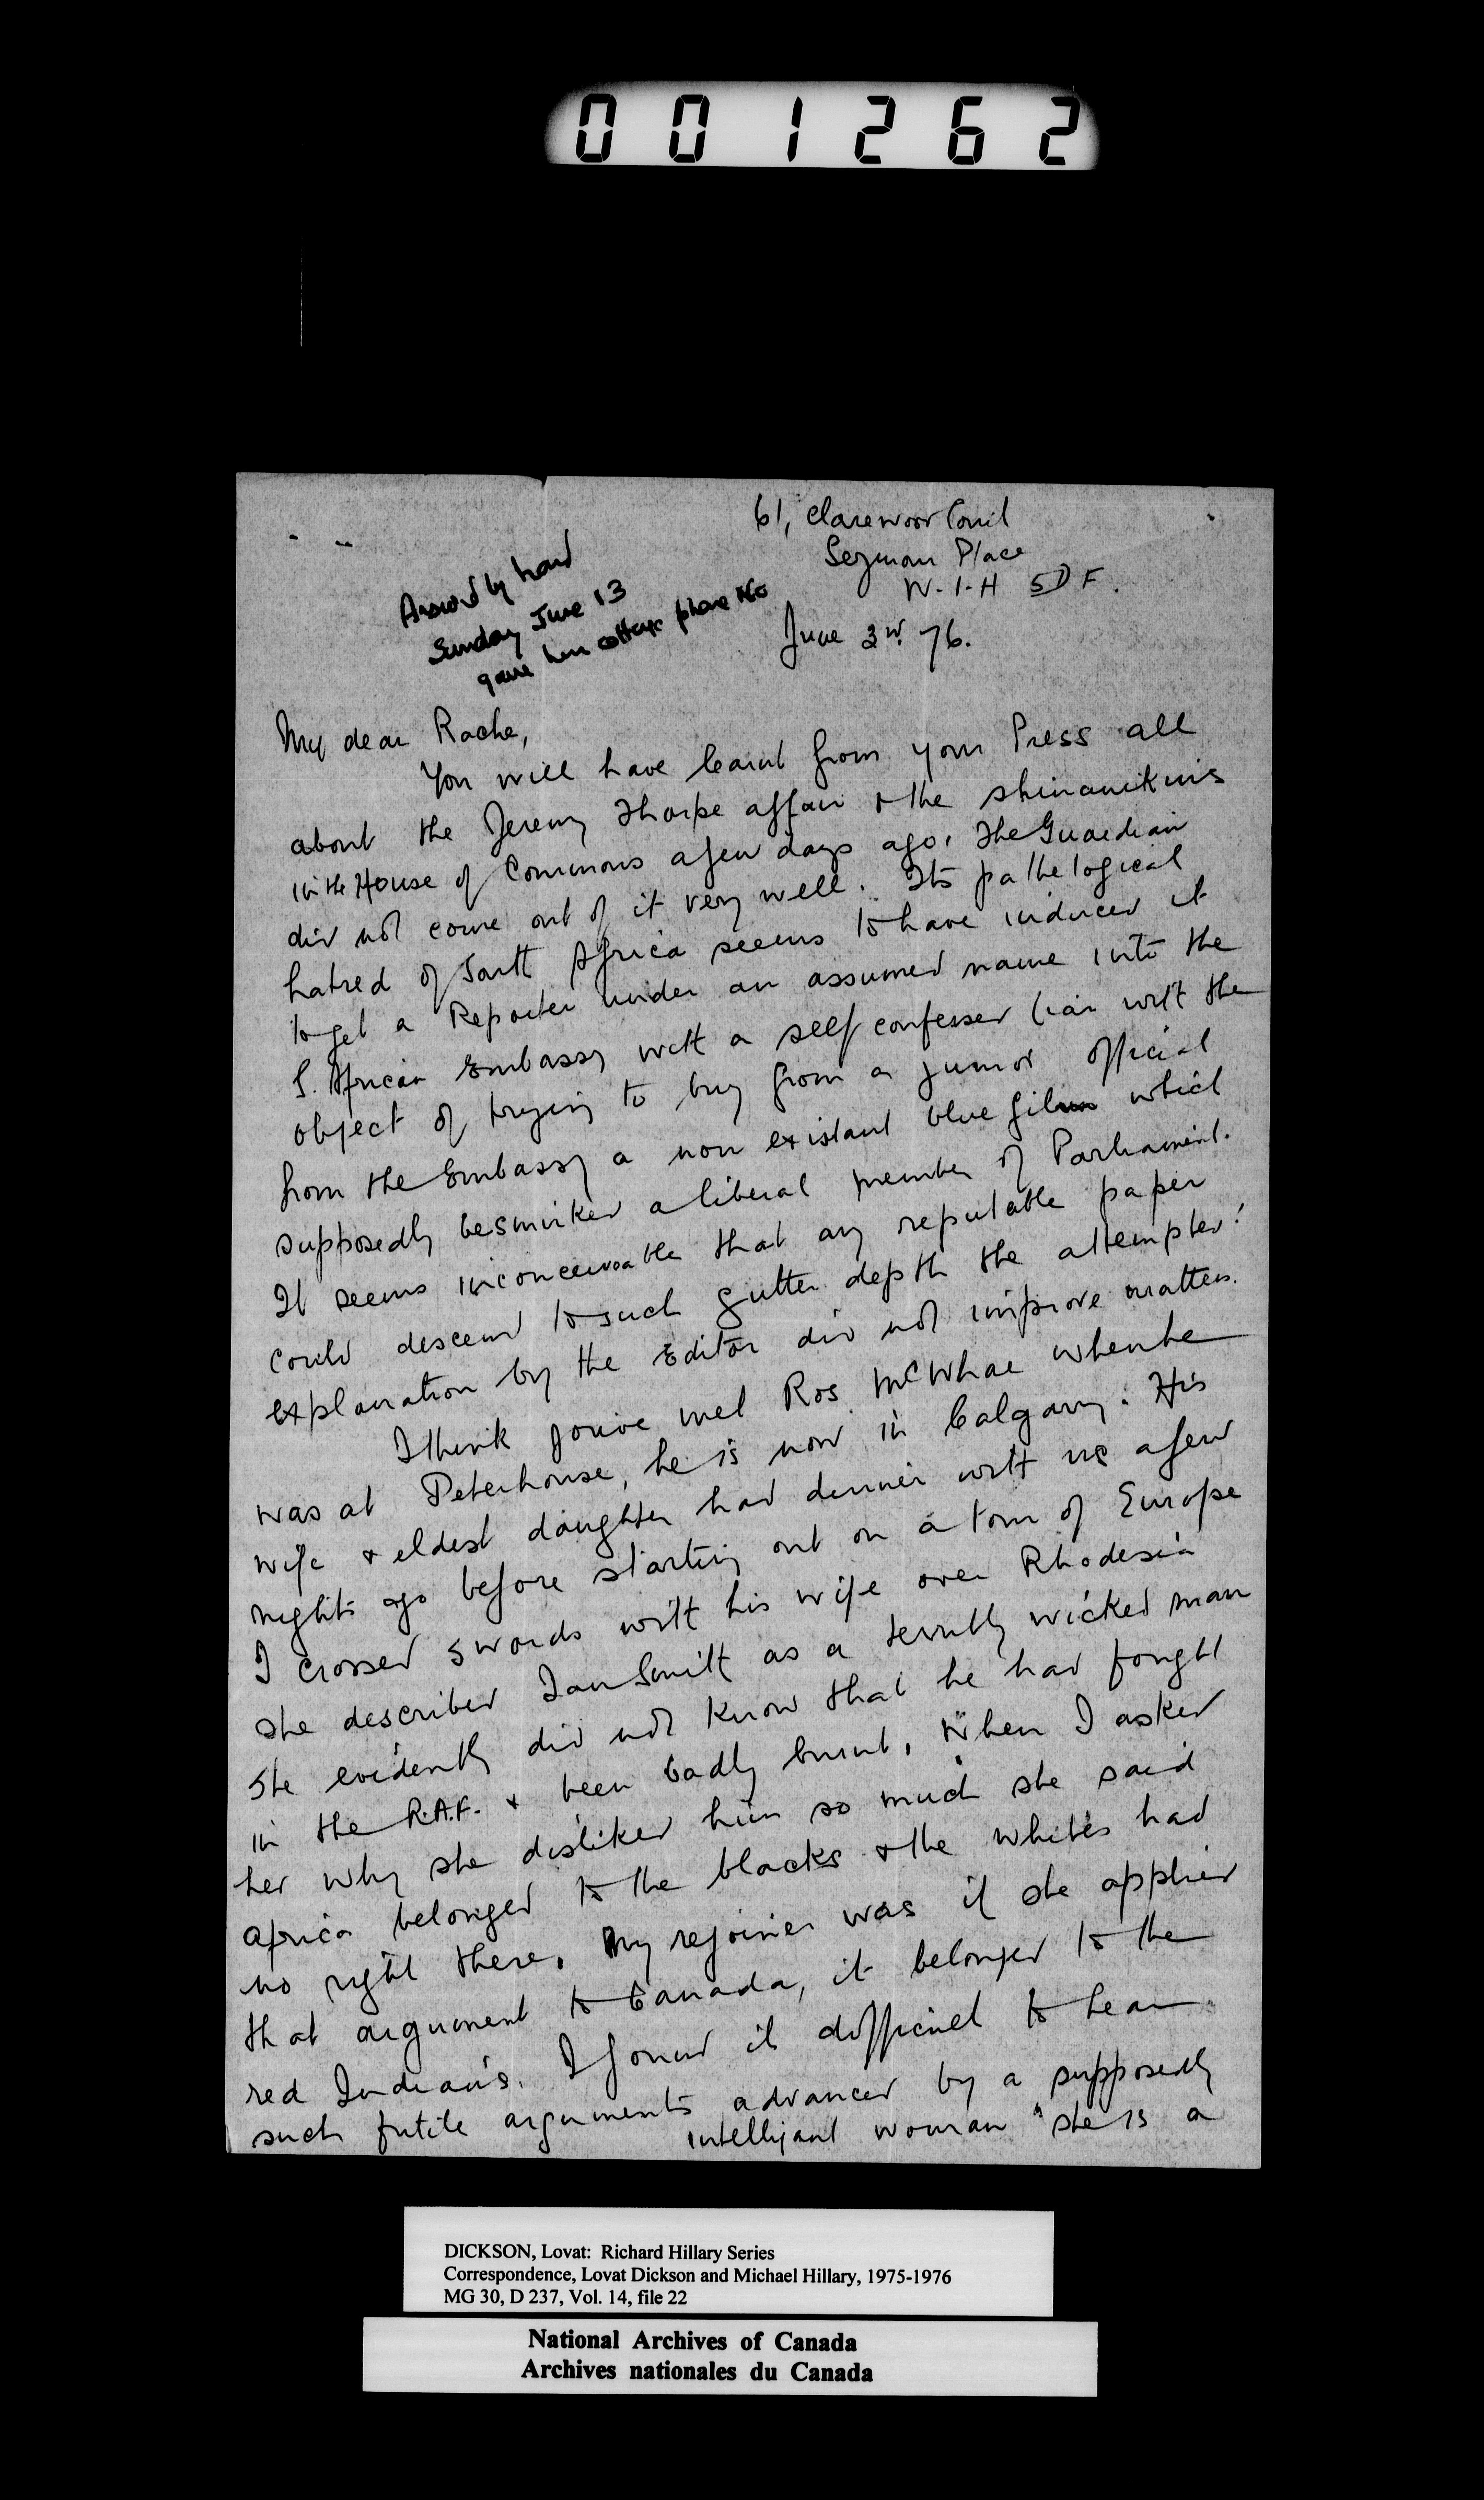 001262
61, Clarewood Court
Seymour Place
W.1.H 5DF.
June 3rd. 76.
Answd by hand
Sunday June 13
gave him cottage phone No
My dear Rache,
You will have learnt from your Press all
about the Jeremy Thorpe affair & the shinanikins
in the House of Commons a few days ago. The Guardian
did not come out of it very well. Its pathelogical
hatred of South Africa seems to have induced it
to get a Reporter under an assumed name into the
S. African Embassy with a self confessed liar with the
object of trying to buy from a junior official
from the Embassy a non existant blue film which
supposedly besmirked a liberal member of Parliament.
It seems inconceivable that any reputable paper
could descend to such gutter depth the attempted
explanation by the Editor did not improve matters.
I think you've met Ros McWhae when he
was at Peterhouse, he is now in Calgary. His
wife & eldest daughter had dinner with us a few
nights ago before starting out on a tour of Europe
I crossed swords with his wife over Rhodesia
she described Ian Smith as a terribly wicked man
she evidently did not know that he had fought
in the R.A.F. & been badly burnt. When I asked
her why she disliked him so much she said
Africa belonged to the blacks & the whites had
no right there. My rejoiner was if she applied
that argument to Canada, it belonged to the
red Indians. I found it difficult to hear
such futile arguments advanced by a supposedly
intelligant woman "she is a
DICKSON, Lovat: Richard Hillary Series
Correspondence, Lovat Dickson and Michael Hillary, 1975-1976
MG 30, D 237, Vol. 14, file 22
National Archives of Canada
Archives nationales du Canada